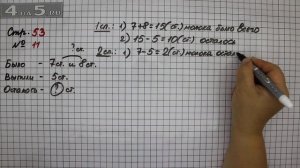 4on5.ru
Стр. 53
№ 11
? ст.
Было - 7 ст. и 8 ст.
Выпили - 5 ст.
Осталось - ? ст.
1 сп.: 1) 7+8=15(ст.) молока было всего
2) 15-5=10(ст) осталось
2 сп.: 1) 7-5=2(ст.) молока остал